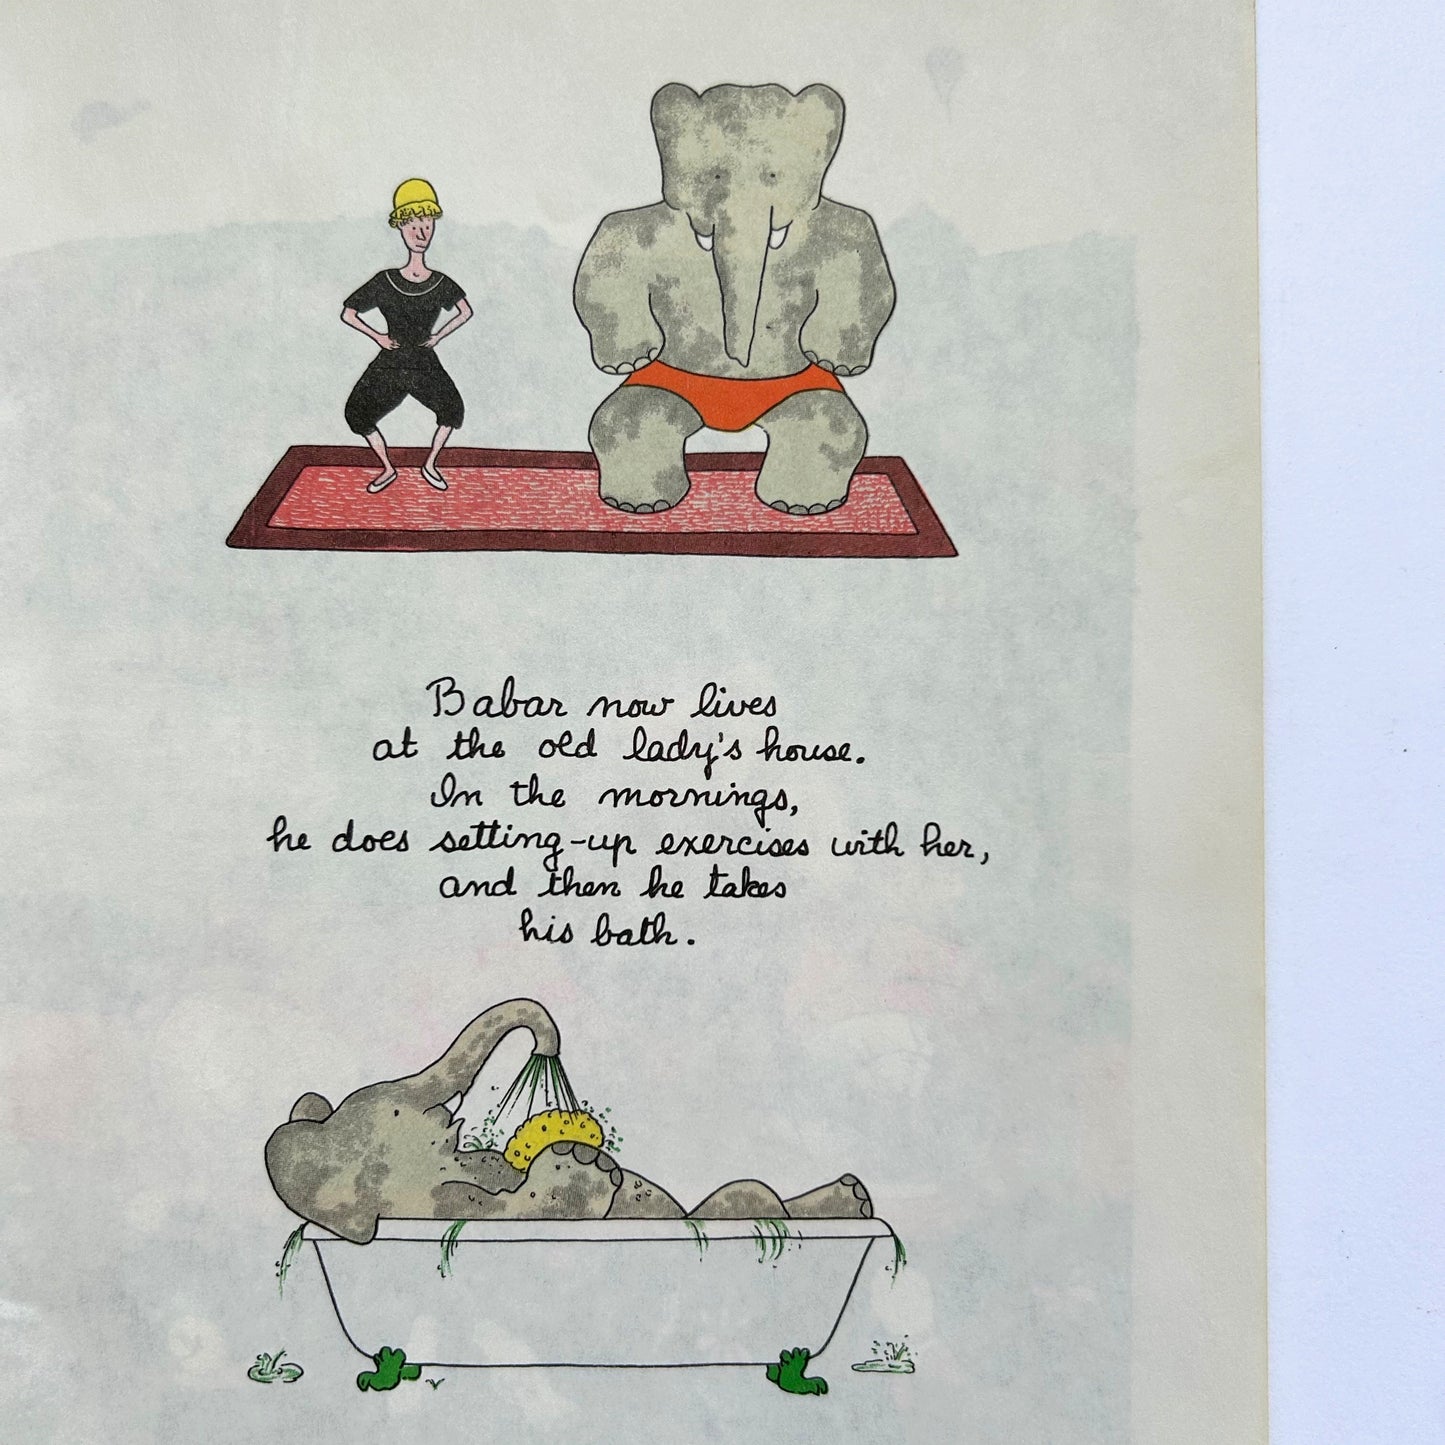 Babar now lives
at the old lady's house.
In the mornings,
he does setting-up exercises with her,
and then he takes
his bath.